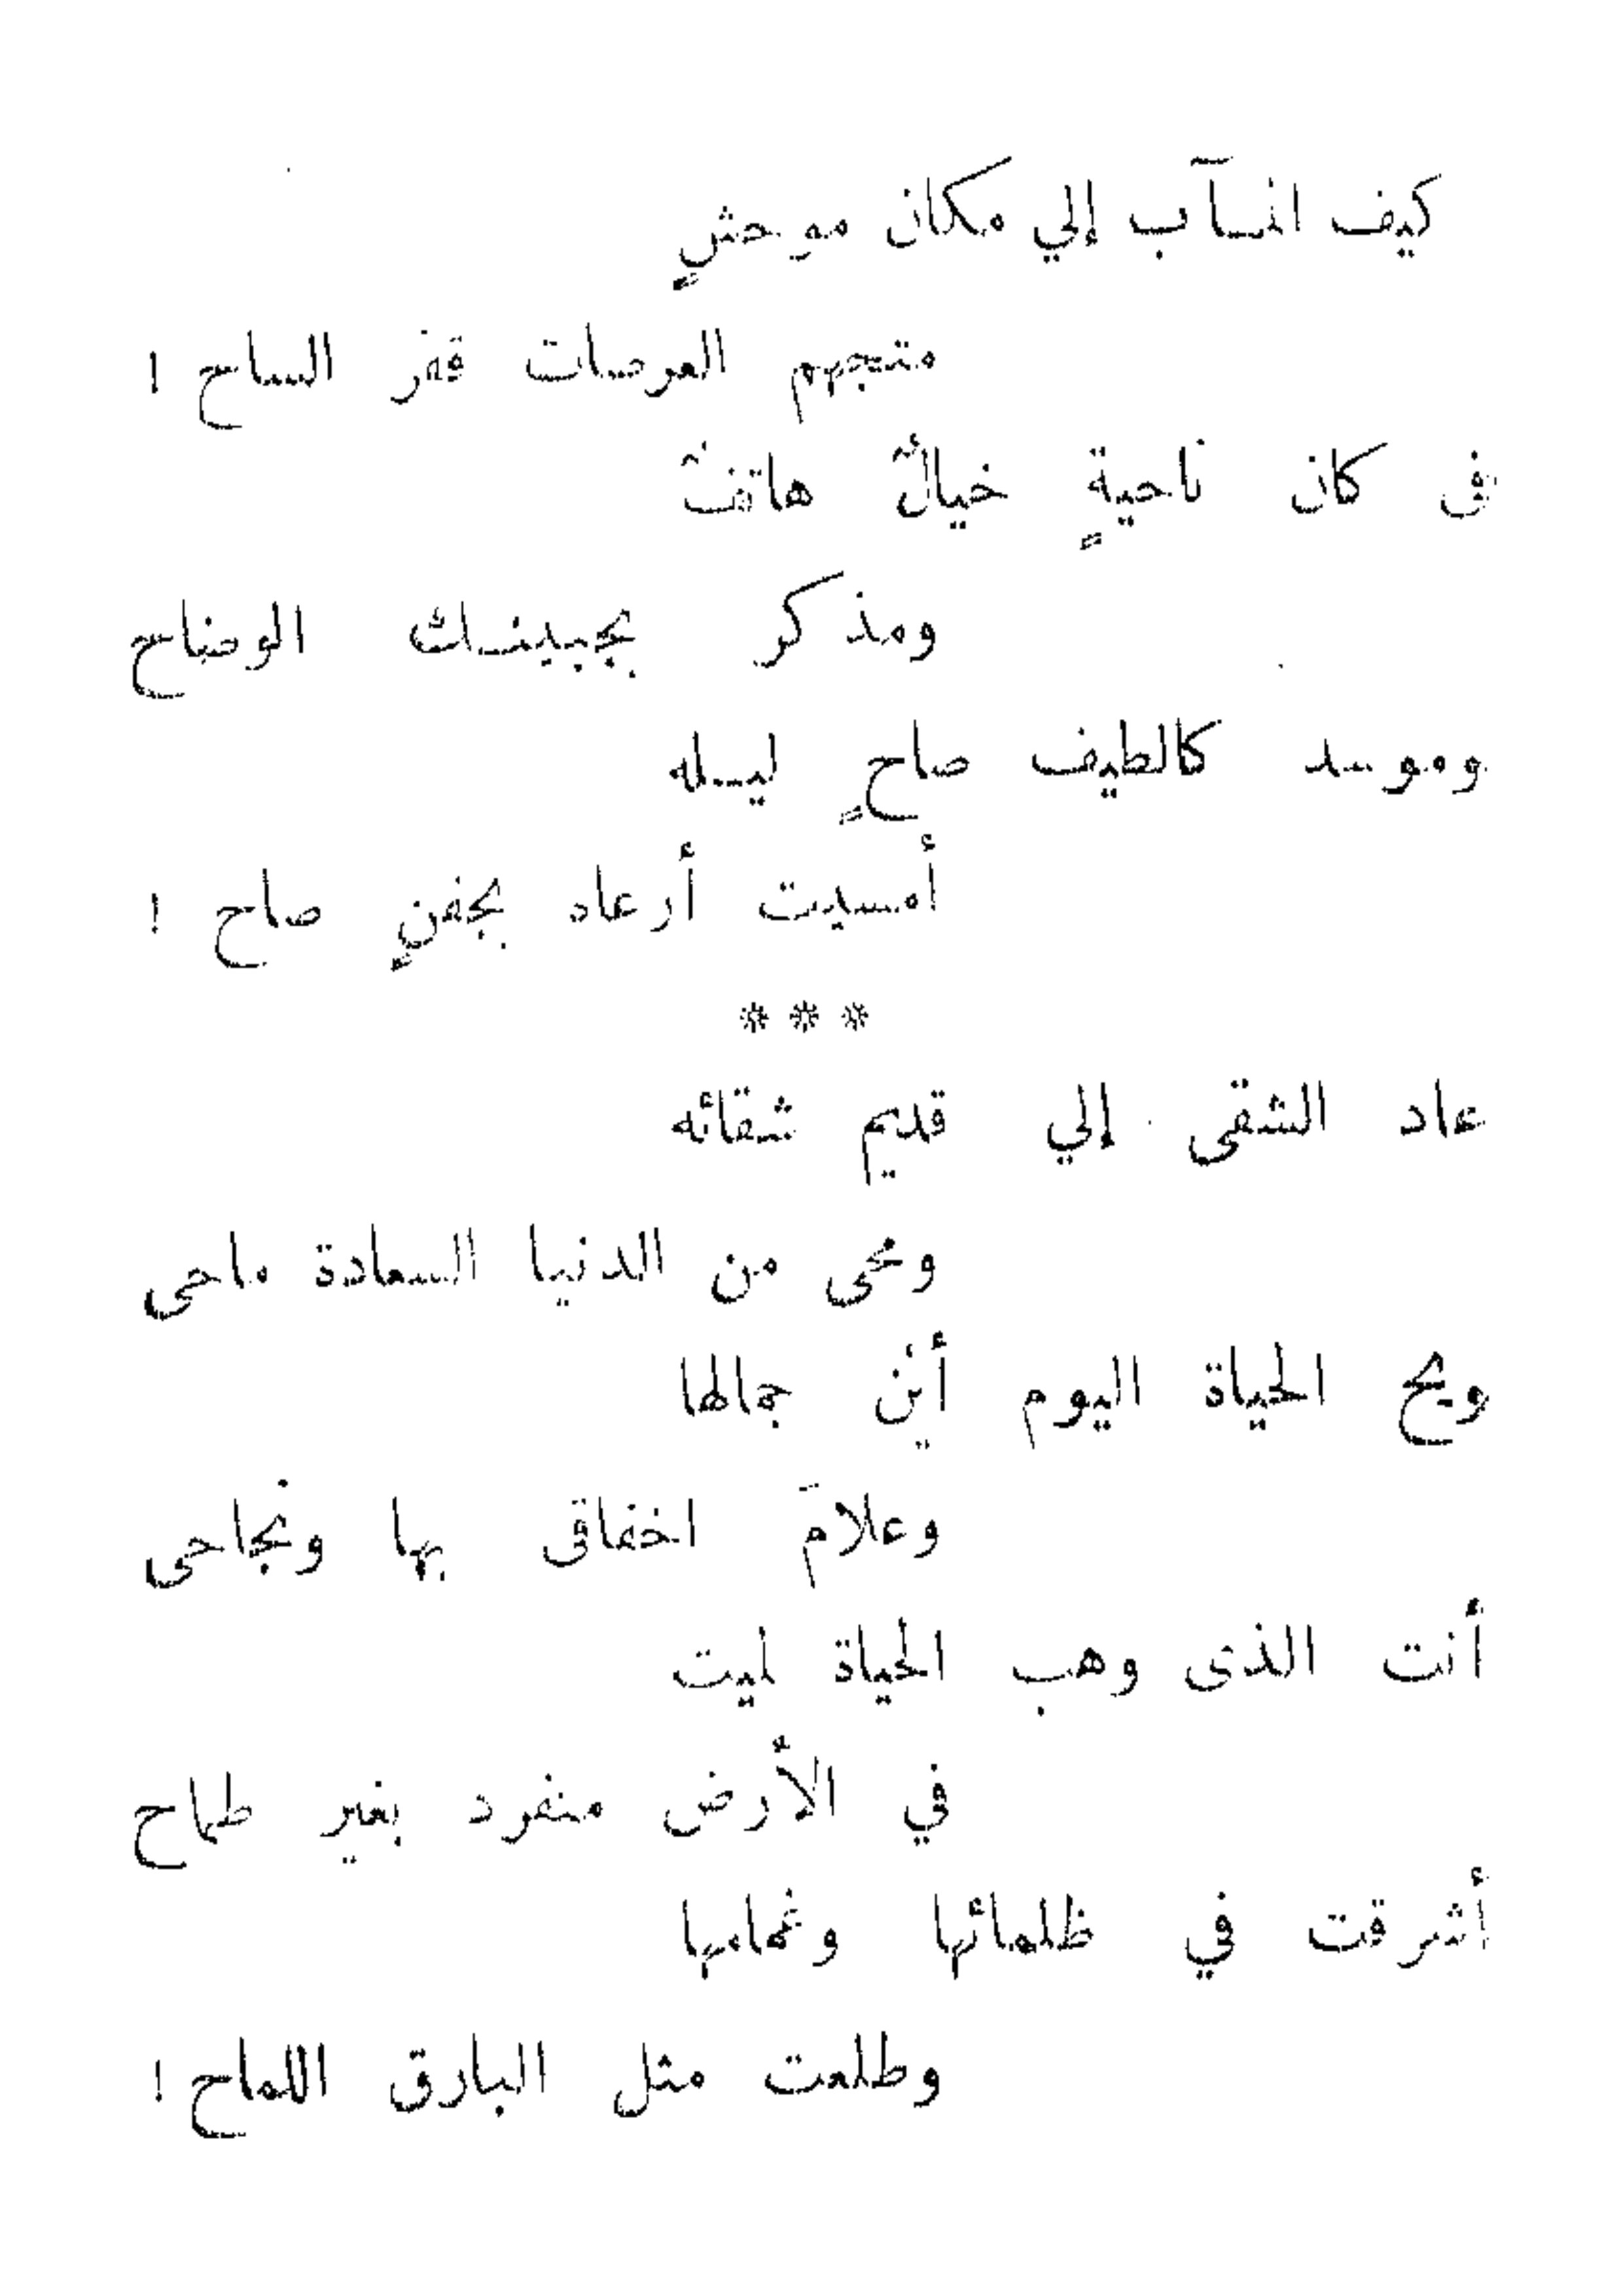 كيف المآب إلي مكان موحشٍ
متجهم العرصات قفر الساح !
في كان ناحيةٍ خيالٌ هاتفٌ
ومذكر بجبينك الوضاح
وموسد كالطيف صاحٍ ليله
أمسيت أرعاه بجفنٍ صاح !
***
عاد الشقى إلي قديم شقائه
ومحى من الدنيا السعادة ماحى
ويح الحياة اليوم أيْن جمالها
وعلامَ اخفاقى بها ونجاحى
أنت الذى وهب الحياة لميت
في الأرض منفرد بغير طماح
أشرقت في ظلمائها وغمامها
وطلعت مثل البارق اللماح !